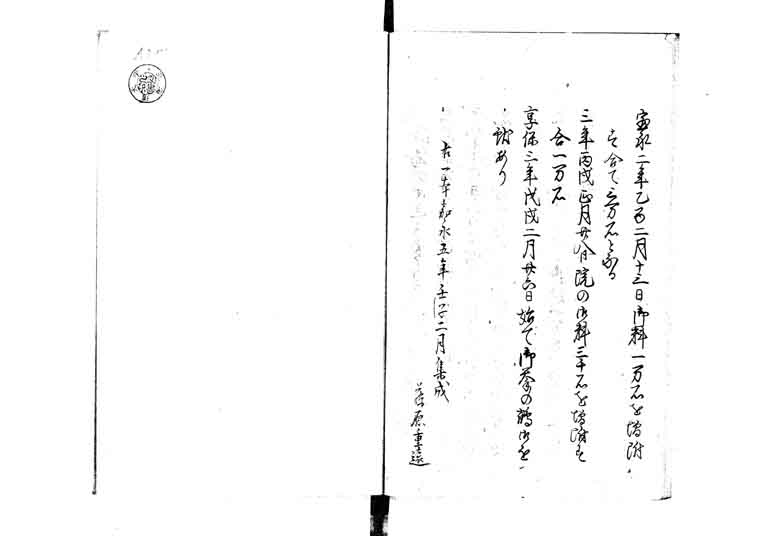 宝永二年乙酉二月十三日御料一万石を増附
す合て三万石となる
三年丙戌正月廿八日院の御料三千石を増附す
合一万石
享保三年戊戌二月廿六日始て御拳の鶴御を
献あり
右一本嘉永五年壬子二月集成
藤原重遠